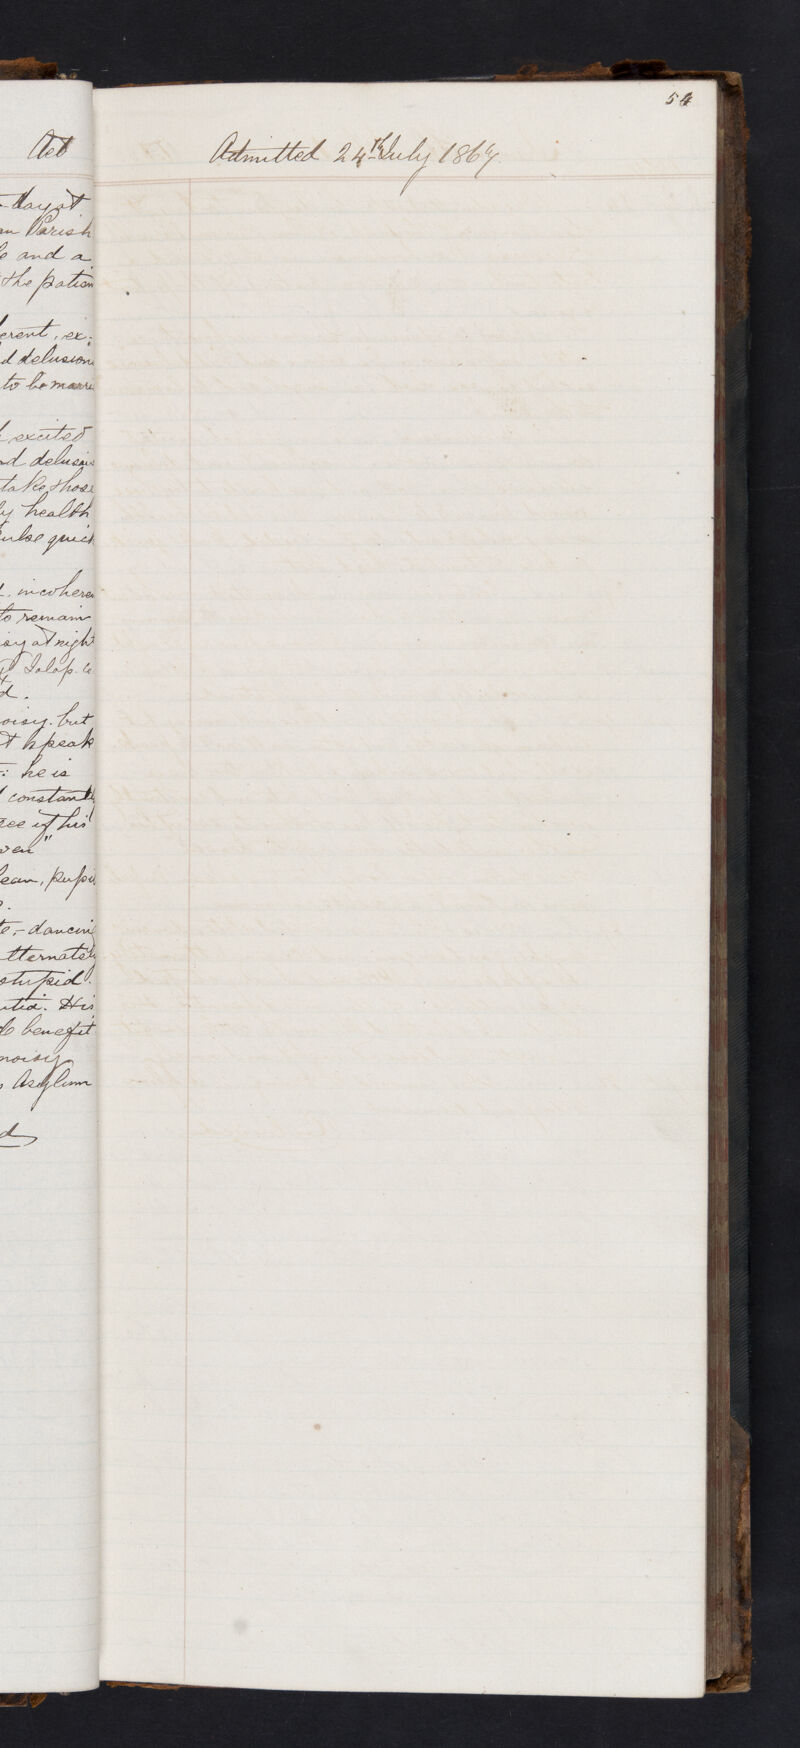 Act
day at
Parish
and a
the patien
erent, ex:
d delusion
to be marri
excited
nd delusion
take those
y health
ulse quick
incoheren
to remain
at night
Jalap. c
d.
oisy. but
t speak
: he is
constantly
ree of his
ven"
lean, pupi
te,- dancing
lternately
stupid.
ntia. His
benefit
noisy
Asylum
54
Admitted 24th July 1867